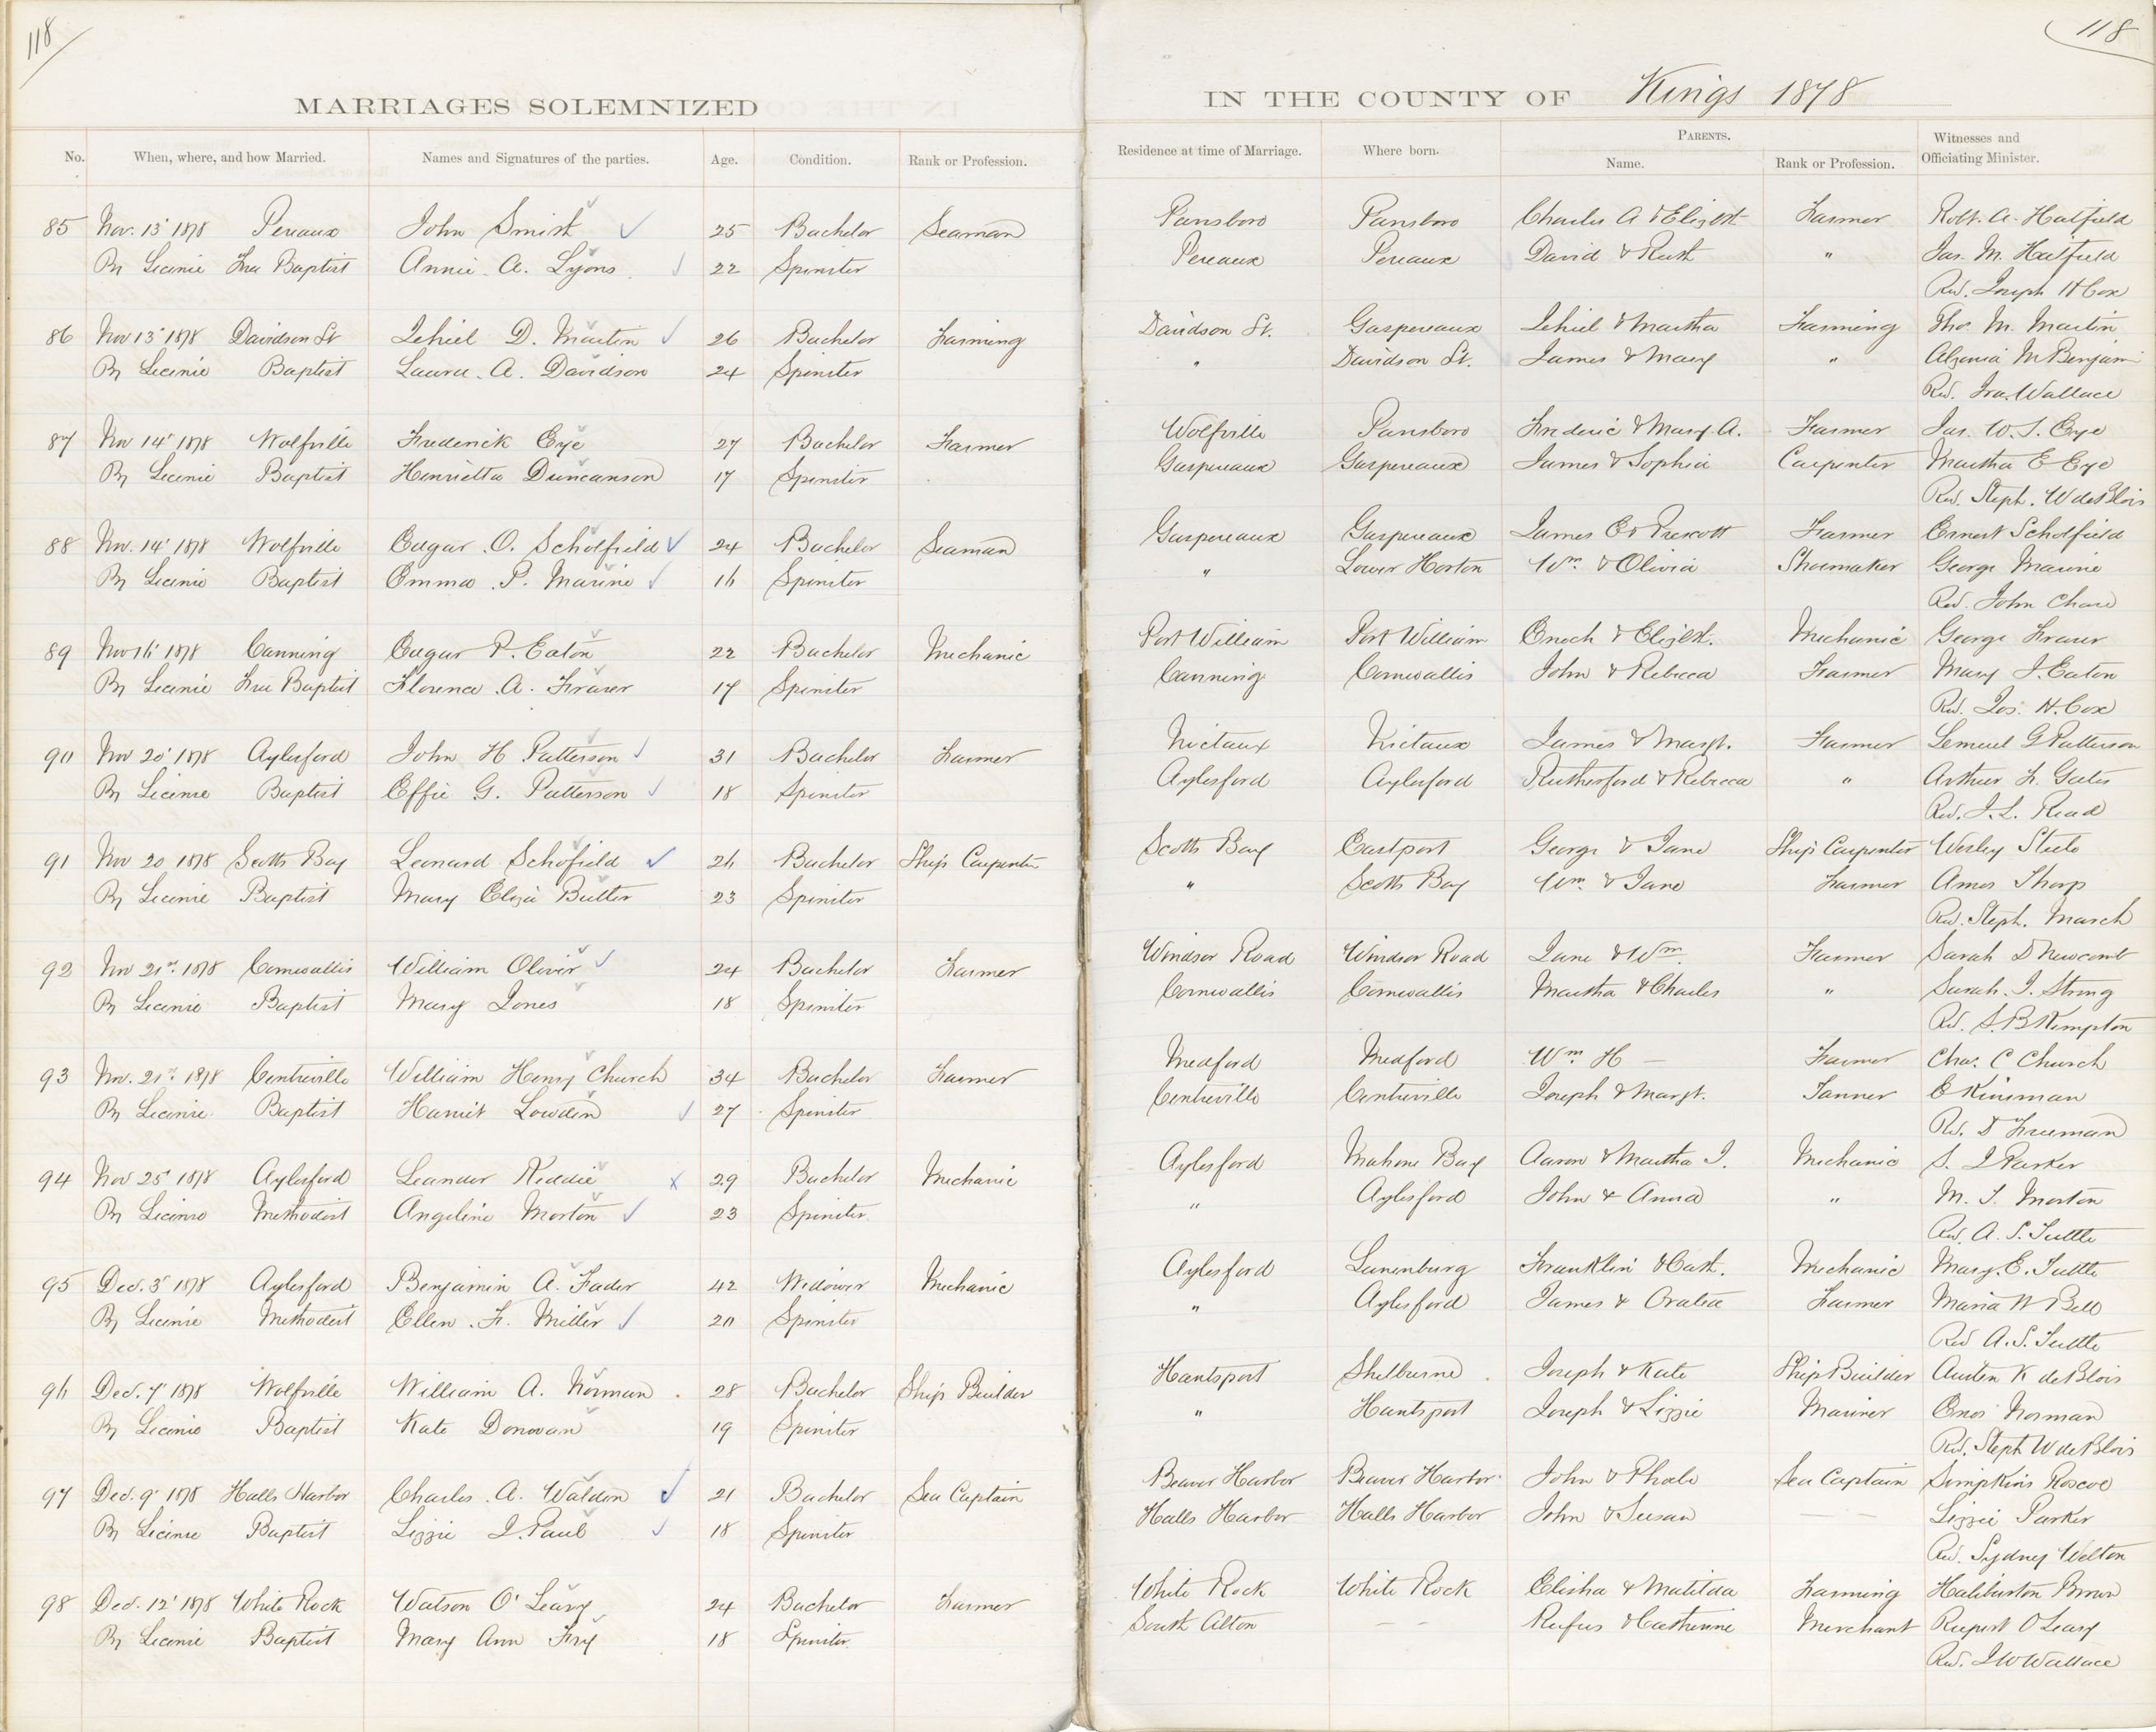 118
118
MARRIAGES SOLEMNIZED IN THE COUNTY OF Kings 1878
No. When, where, and how Married. Names and Signatures of the parties. Age. Condition. Rank or Profession. Residence at time of Marriage. Where born. PARENTS. Name. Rank or Profession. Witnesses and Officiating Minister.
85 Nov. 13' 1878 Pereaux John Smith 25 Bachelor Seaman Parrsboro Parrsboro Charles A & Elizbth Farmer Robt. A. Hatfield
By License Free Baptist Annie A. Lyons 22 Spinster Pereaux Pereaux David & Ruth " Jas. M. Hatfield
Rev. Joseph H Cox
86 Nov 13' 1878 Davidson St Jehiel D. Martin 26 Bachelor Farming Davidson St. Gaspereaux Jehiel & Martha Farming Tho. M. Martin
By License Baptist Laura A. Davidson 24 Spinster " Davidson St. James & Mary " M Benjamin
Rev. Ira Wallace
87 Nov 14' 1878 Wolfville Frederick Eye 27 Bachelor Farmer Wolfville Parrsboro Frederic & Mary A. Farmer Jas. W. S. Eye
By License Baptist Henrietta Duncanson 17 Spinster Gaspereaux Gaspereaux James & Sophia Carpenter Martha E Eye
Rev. Steph. W deBlois
88 Nov. 14' 1878 Wolfville Edgar O. Scholfield 24 Bachelor Seaman Gaspereaux Gaspereaux James E & Prescott Farmer Ernest Scholfield
By License Baptist Emma P. Marine 16 Spinster " Lower Horton Wm & Olivia Shoemaker George Marine
Rev. John Chase
89 Nov 16' 1878 Canning Edgar P. Eaton 22 Bachelor Mechanic Port William Port William Enoch & Elizbt. Mechanic George Fraser
By License Free Baptist Florence A. Fraser 17 Spinster Canning Cornwallis John & Rebecca Farmer Mary J. Eaton
Rev. Jos. H. Cox
90 Nov 20' 1878 Aylesford John H Patterson 31 Bachelor Farmer Nictaux Nictaux James & Margt. Farmer Lemuel G Patterson
By License Baptist Effie G. Patterson 18 Spinster Aylesford Aylesford Rutherford & Rebecca " Arthur F. Gates
Rev. J. L. Read
91 Nov 20 1878 Scotts Bay Leonard Schofield 26 Bachelor Ship Carpenter Scotts Bay Eastport George & Jane Ship Carpenter Wesley Steele
By License Baptist Mary Eliza Butler 23 Spinster " Scotts Bay Wm. & Jane Farmer Amos Thorp
Rev. Steph. March
92 Nov 21st 1878 Cornwallis William Oliver 24 Bachelor Farmer Windsor Road Windsor Road Jane & Wm. Farmer Sarah D Newcomb
By License Baptist Mary Jones 18 Spinster Cornwallis Cornwallis Martha & Charles " Sarah J. Strong
Rev. S. B Kempton
93 Nov. 21st 1878 Centreville William Henry Church 34 Bachelor Farmer Medford Medford Wm H — Farmer Cha. C Church
By License Baptist Harriet Lowden 27 Spinster Centreville Centreville Joseph & Margt. Tanner E Kinsman
Rev. D Freeman
94 Nov 25' 1878 Aylesford Leander Keddie 29 Bachelor Mechanic Aylesford Mahone Bay Aaron & Martha J. Mechanic S. J Parker
By License Methodist Angeline Morton 23 Spinster " Aylesford John & Anna " M. T. Morton
Rev. A. S. Tuttle
95 Dec. 3' 1878 Aylesford Benjamin A. Fader 42 Widower Mechanic Aylesford Lunenburg Franklin & Cath. Mechanic Mary. E. Tuttle
By License Methodist Ellen F. Miller 20 Spinster " Aylesford James & Oralia Farmer Maria W Bell
Rev A. S. Tuttle
96 Dec. 7' 1878 Wolfville William A. Norman 28 Bachelor Ship Builder Hantsport Shelburne Joseph & Kate Ship Builder Austen K deBlois
By License Baptist Kate Donovan 19 Spinster " Hantsport Joseph & Lizzie Mariner Enos Norman
Rev. Steph W deBlois
97 Dec. 9' 1878 Halls Harbor Charles A. Walden 21 Bachelor Sea Captain Beaver Harbor Beaver Harbor John & Phebe Sea Captain Simpkins Roscoe
By License Baptist Lizzie J. Paul 18 Spinster Halls Harbor Halls Harbor John & Susan — — Lizzie Parker
Rev. Sydney Welton
98 Dec. 12' 1878 White Rock Watson O'Leary 24 Bachelor Farmer White Rock White Rock Elisha & Matilda Farming Haliburton Brown
By License Baptist Mary Ann Fry 18 Spinster South Alton — — Rufus & Catherine Merchant Rupert O Leary
Rev. J W Wallace